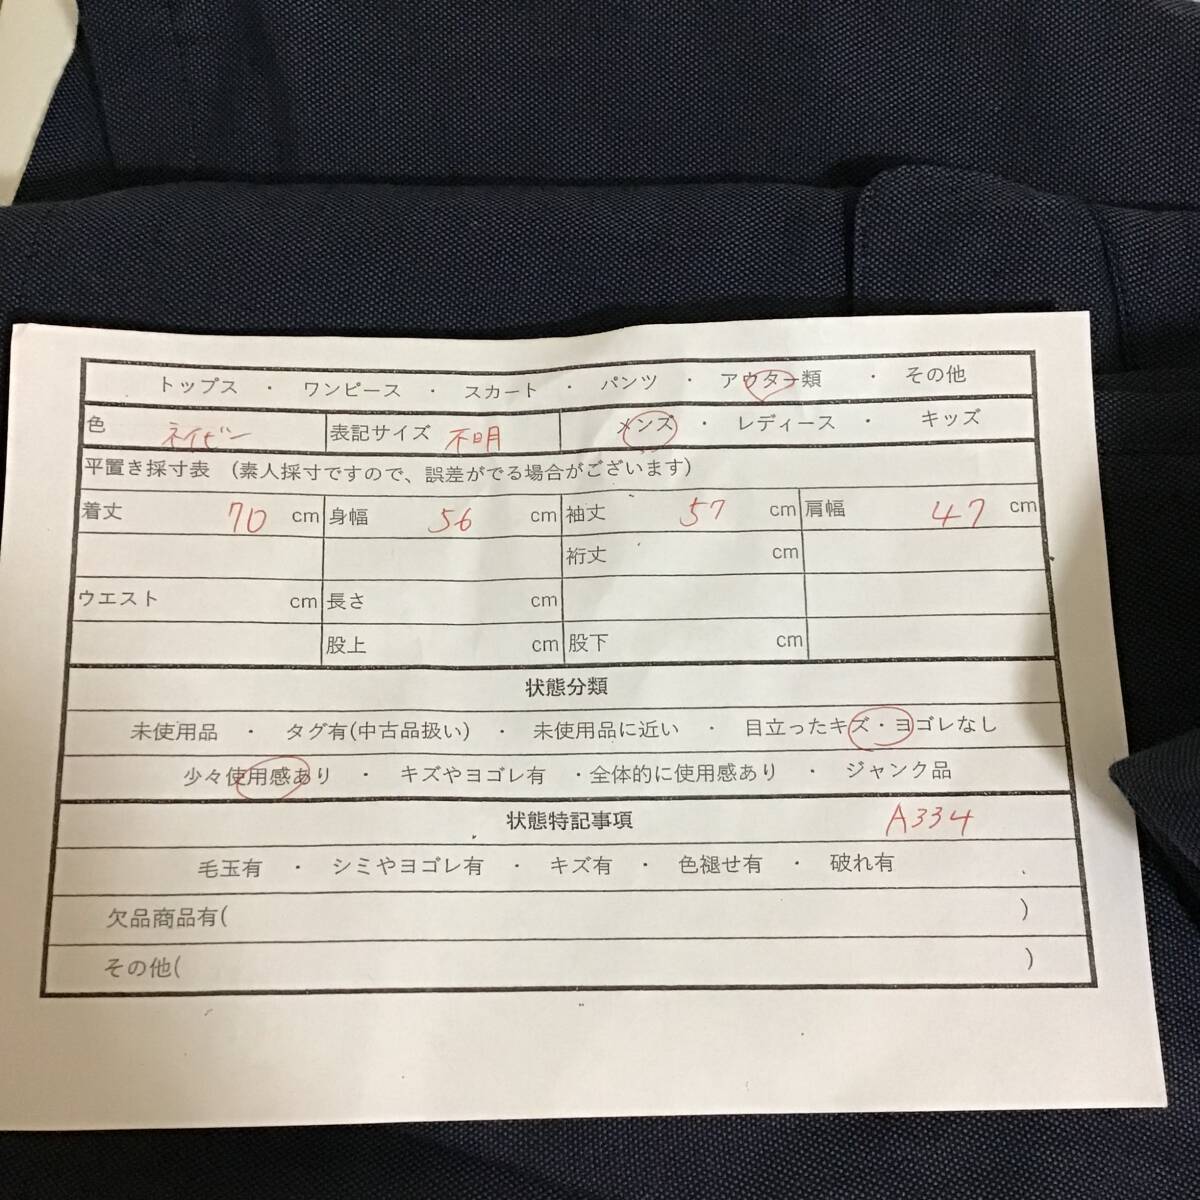 トップス ・ ワンピース ・ スカート ・ パンツ ・ アウター類 ・ その他
色 ネイビー 表記サイズ 不明 メンズ ・ レディース ・ キッズ
平置き採寸表 (素人採寸ですので、誤差がでる場合がございます)
着丈 70 cm 身幅 56 cm 袖丈 57 cm 肩幅 47 cm
裄丈 cm
ウエスト cm 長さ cm
股上 cm 股下 cm
状態分類
未使用品 ・ タグ有(中古品扱い) ・ 未使用品に近い ・ 目立ったキズ・ヨゴレなし
少々使用感あり ・ キズやヨゴレ有 ・全体的に使用感あり ・ ジャンク品
状態特記事項 A334
毛玉有 ・ シミやヨゴレ有 ・ キズ有 ・ 色褪せ有 ・ 破れ有
欠品商品有( )
その他( )